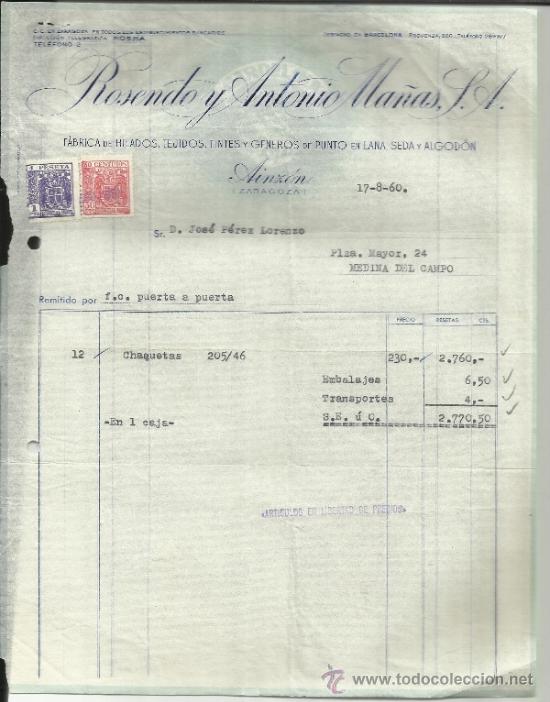 C/C. EN ZARAGOZA EN TODOS LOS ESTABLECIMIENTOS BANCARIOS
DIRECCIÓN TELEGRÁFICA ROSMA
TELÉFONO 2
DESPACHO EN BARCELONA: PROVENZA,
Rosendo y Antonio Mañas, S. A.
FÁBRICA DE HILADOS, TEJIDOS, TINTES Y GÉNEROS DE PUNTO EN LANA, SEDA Y ALGODÓN
Ainzón
(ZARAGOZA)
17-8-60.
1 PESETA
50 CENTIMOS
Sr. D. José Pérez Lorenzo
Plza. Mayor, 24
MEDINA DEL CAMPO
Remitido por f.c. puerta a puerta
PRECIO PESETAS CTS.
12 Chaquetas 205/46 230,- 2.760,-
Embalajes 6,50
Transportes 4,-
S.E. ú O. 2.770,50
-En 1 caja-
«ARTICULOS EN LIBERTAD DE PRECIOS»
todocoleccion
www.todocoleccion.net